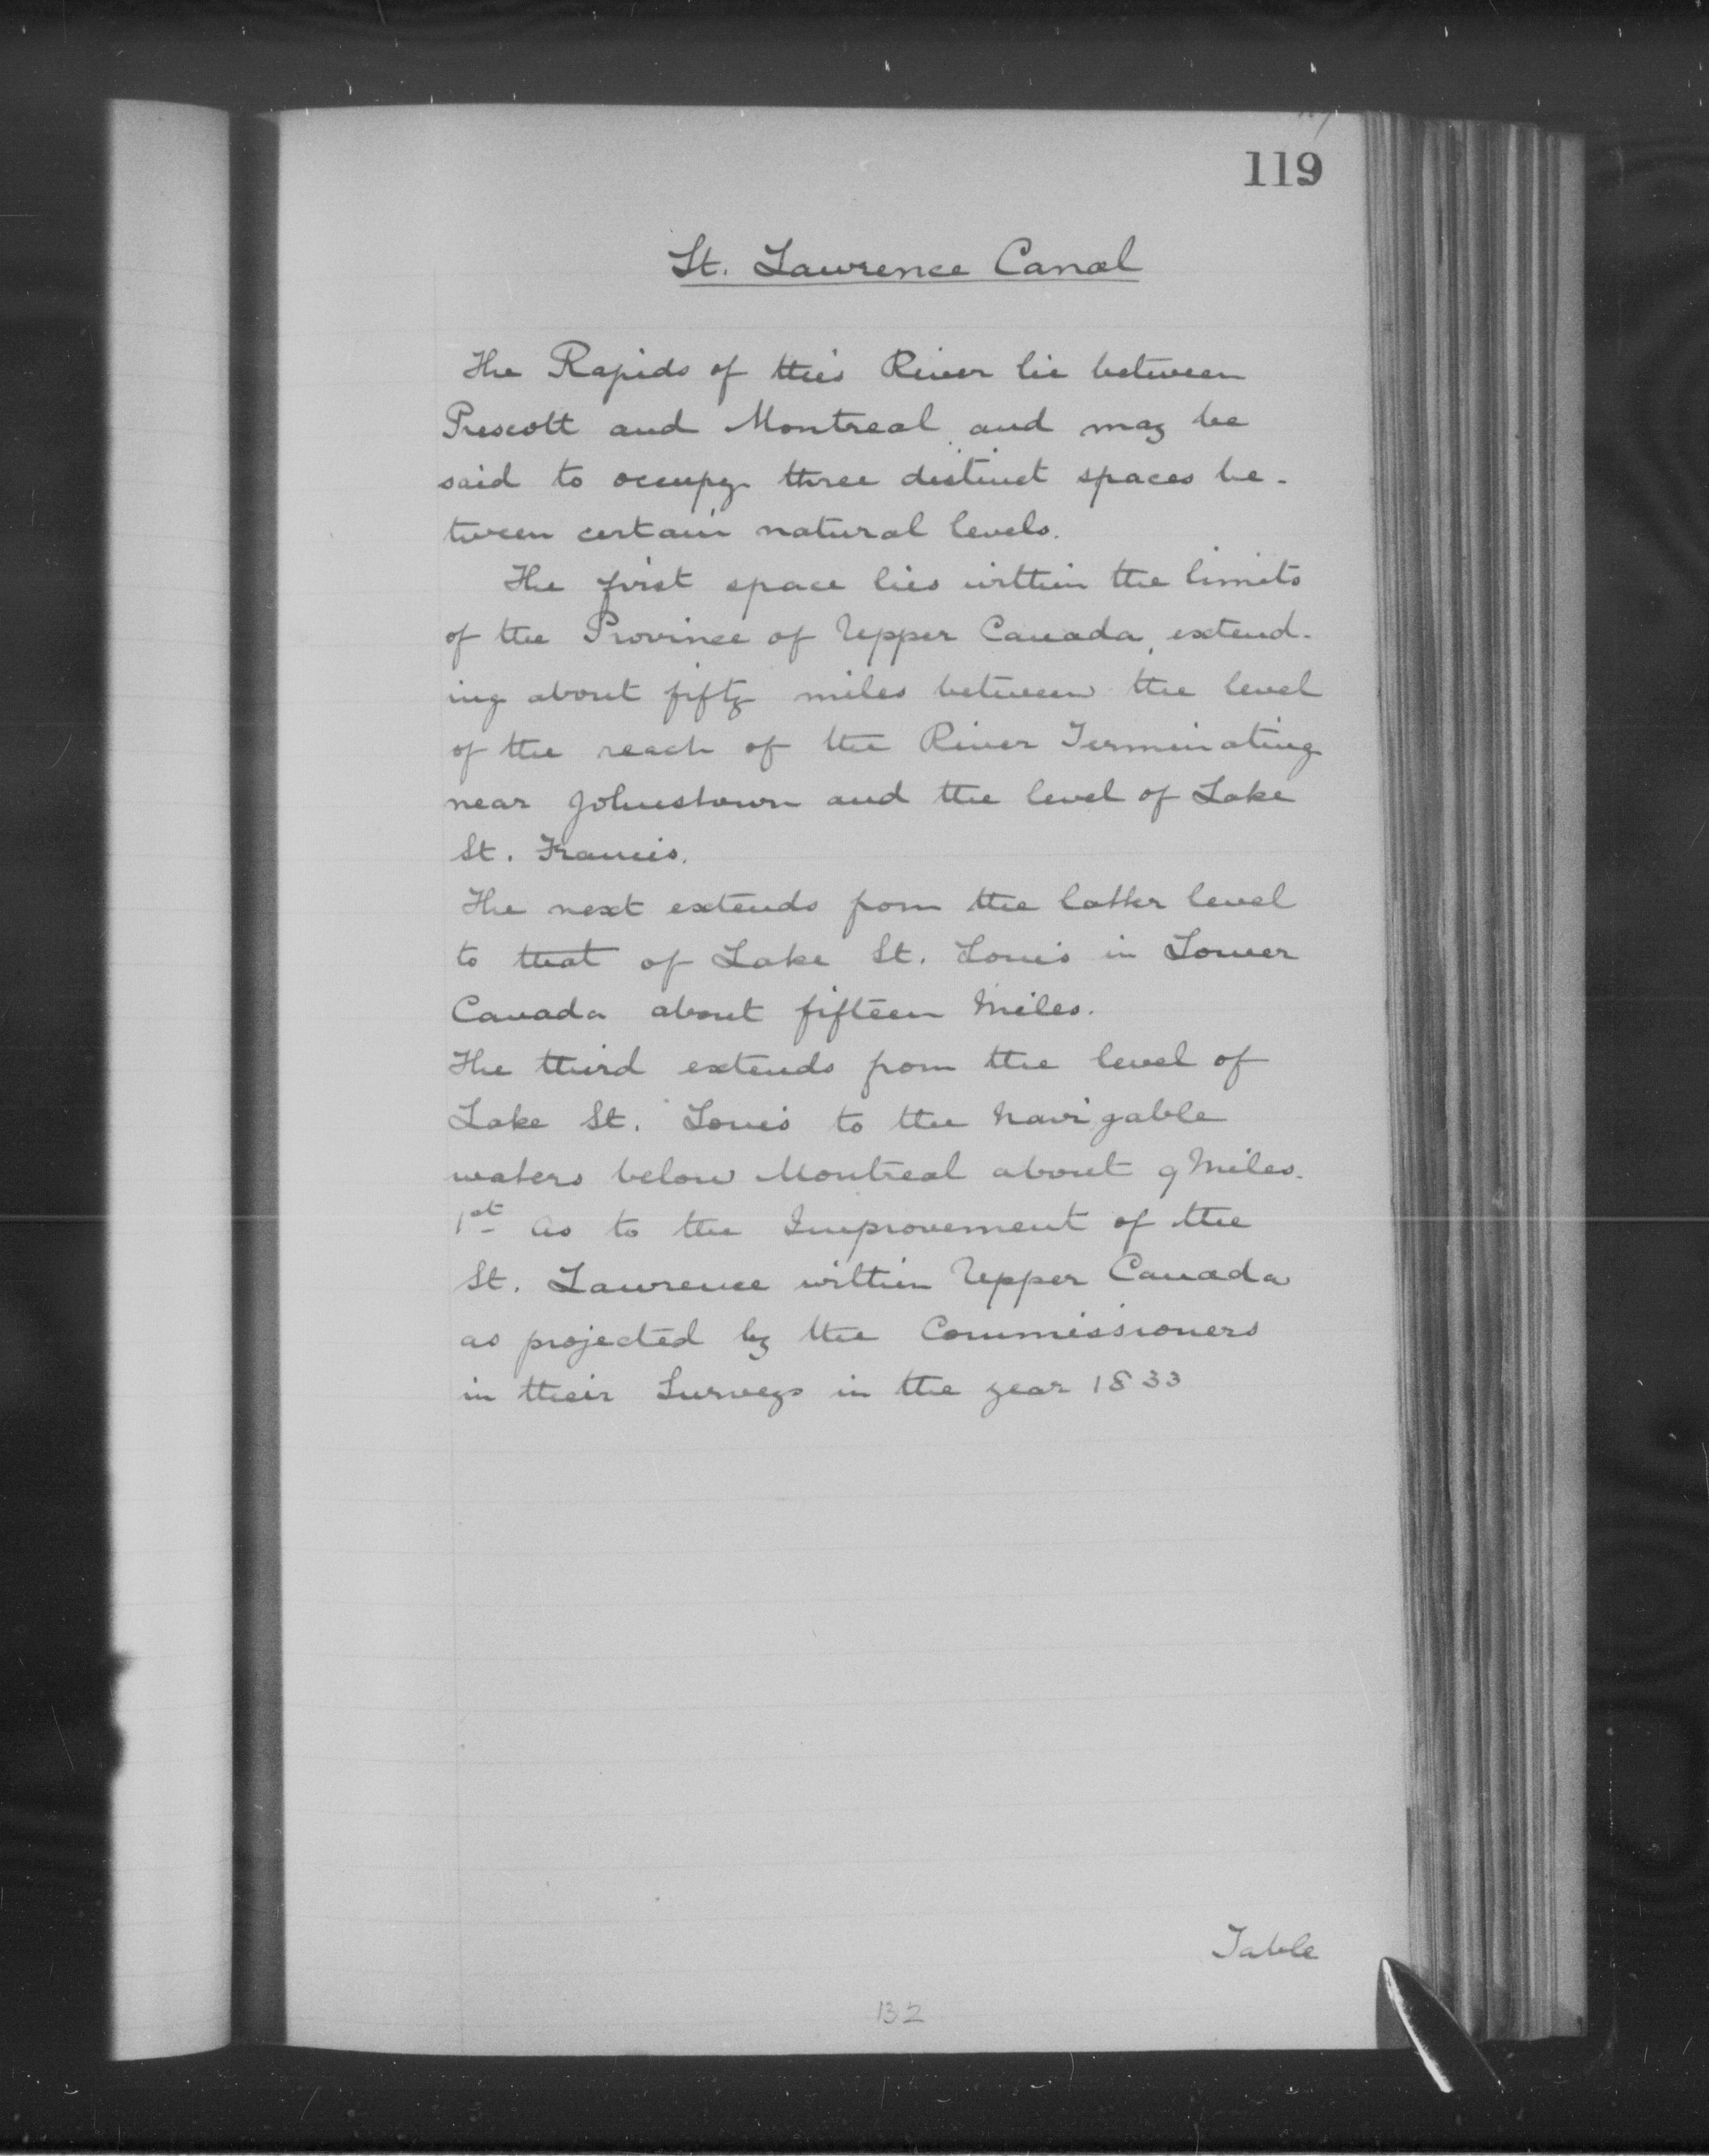 119
St. Lawrence Canal
The Rapids of this River lie between
Prescott and Montreal and may be
said to occupy three distinct spaces be-
tween certain natural levels.
The first space lies within the limits
of the Province of Upper Canada, extend-
ing about fifty miles between the level
of the reach of the River Terminating
near Johnstown and the level of Lake
St. Francis.
The next extends from the latter level
to that of Lake St. Louis in Lower
Canada about fifteen Miles.
The third extends from the level of
Lake St. Louis to the Navigable
waters below Montreal about 9 Miles.
1st As to the Improvement of the
St. Lawrence within Upper Canada
as projected by the Commissioners
in their Surveys in the year 1833
Table
132